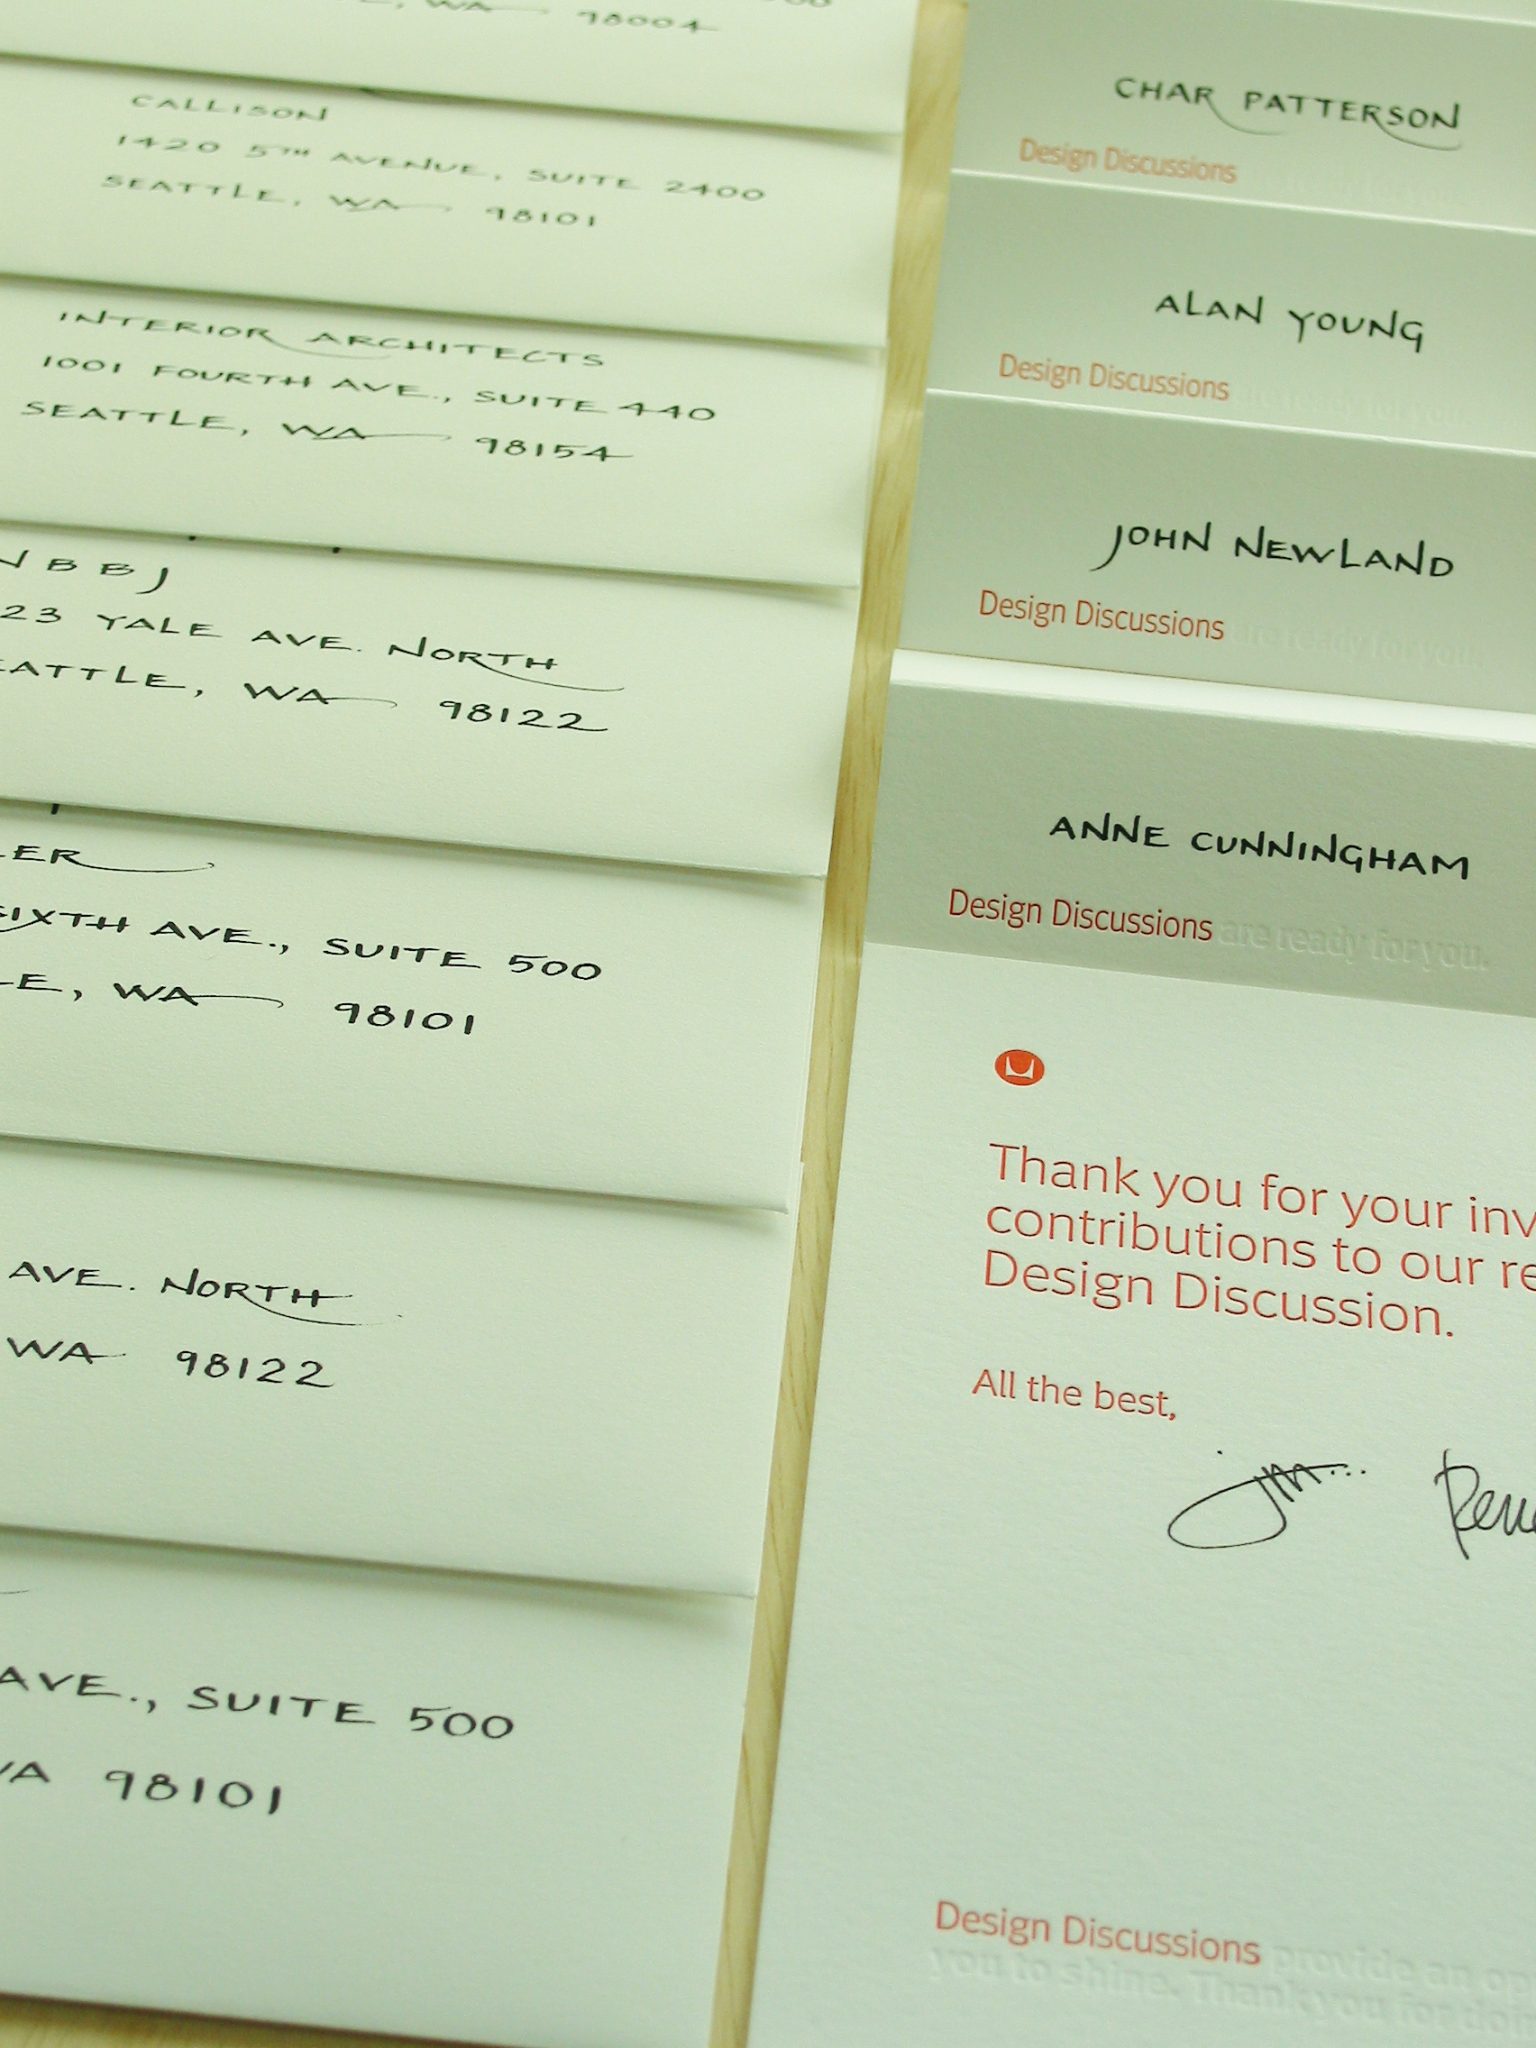 WA 98004
CALLISON
1420 5TH AVENUE, SUITE 2400
SEATTLE, WA 98101
INTERIOR ARCHITECTS
1001 FOURTH AVE., SUITE 440
SEATTLE, WA 98154
NBBJ
23 YALE AVE. NORTH
EATTLE, WA 98122
LER
SIXTH AVE., SUITE 500
LE, WA 98101
AVE. NORTH
WA 98122
AVE., SUITE 500
WA 98101
CHAR PATTERSON
Design Discussions
ALAN YOUNG
Design Discussions are ready for you.
JOHN NEWLAND
Design Discussions are ready for you.
ANNE CUNNINGHAM
Design Discussions are ready for you.
Thank you for your inv
contributions to our re
Design Discussion.
All the best,
Design Discussions provide an op
you to shine. Thank you for doin